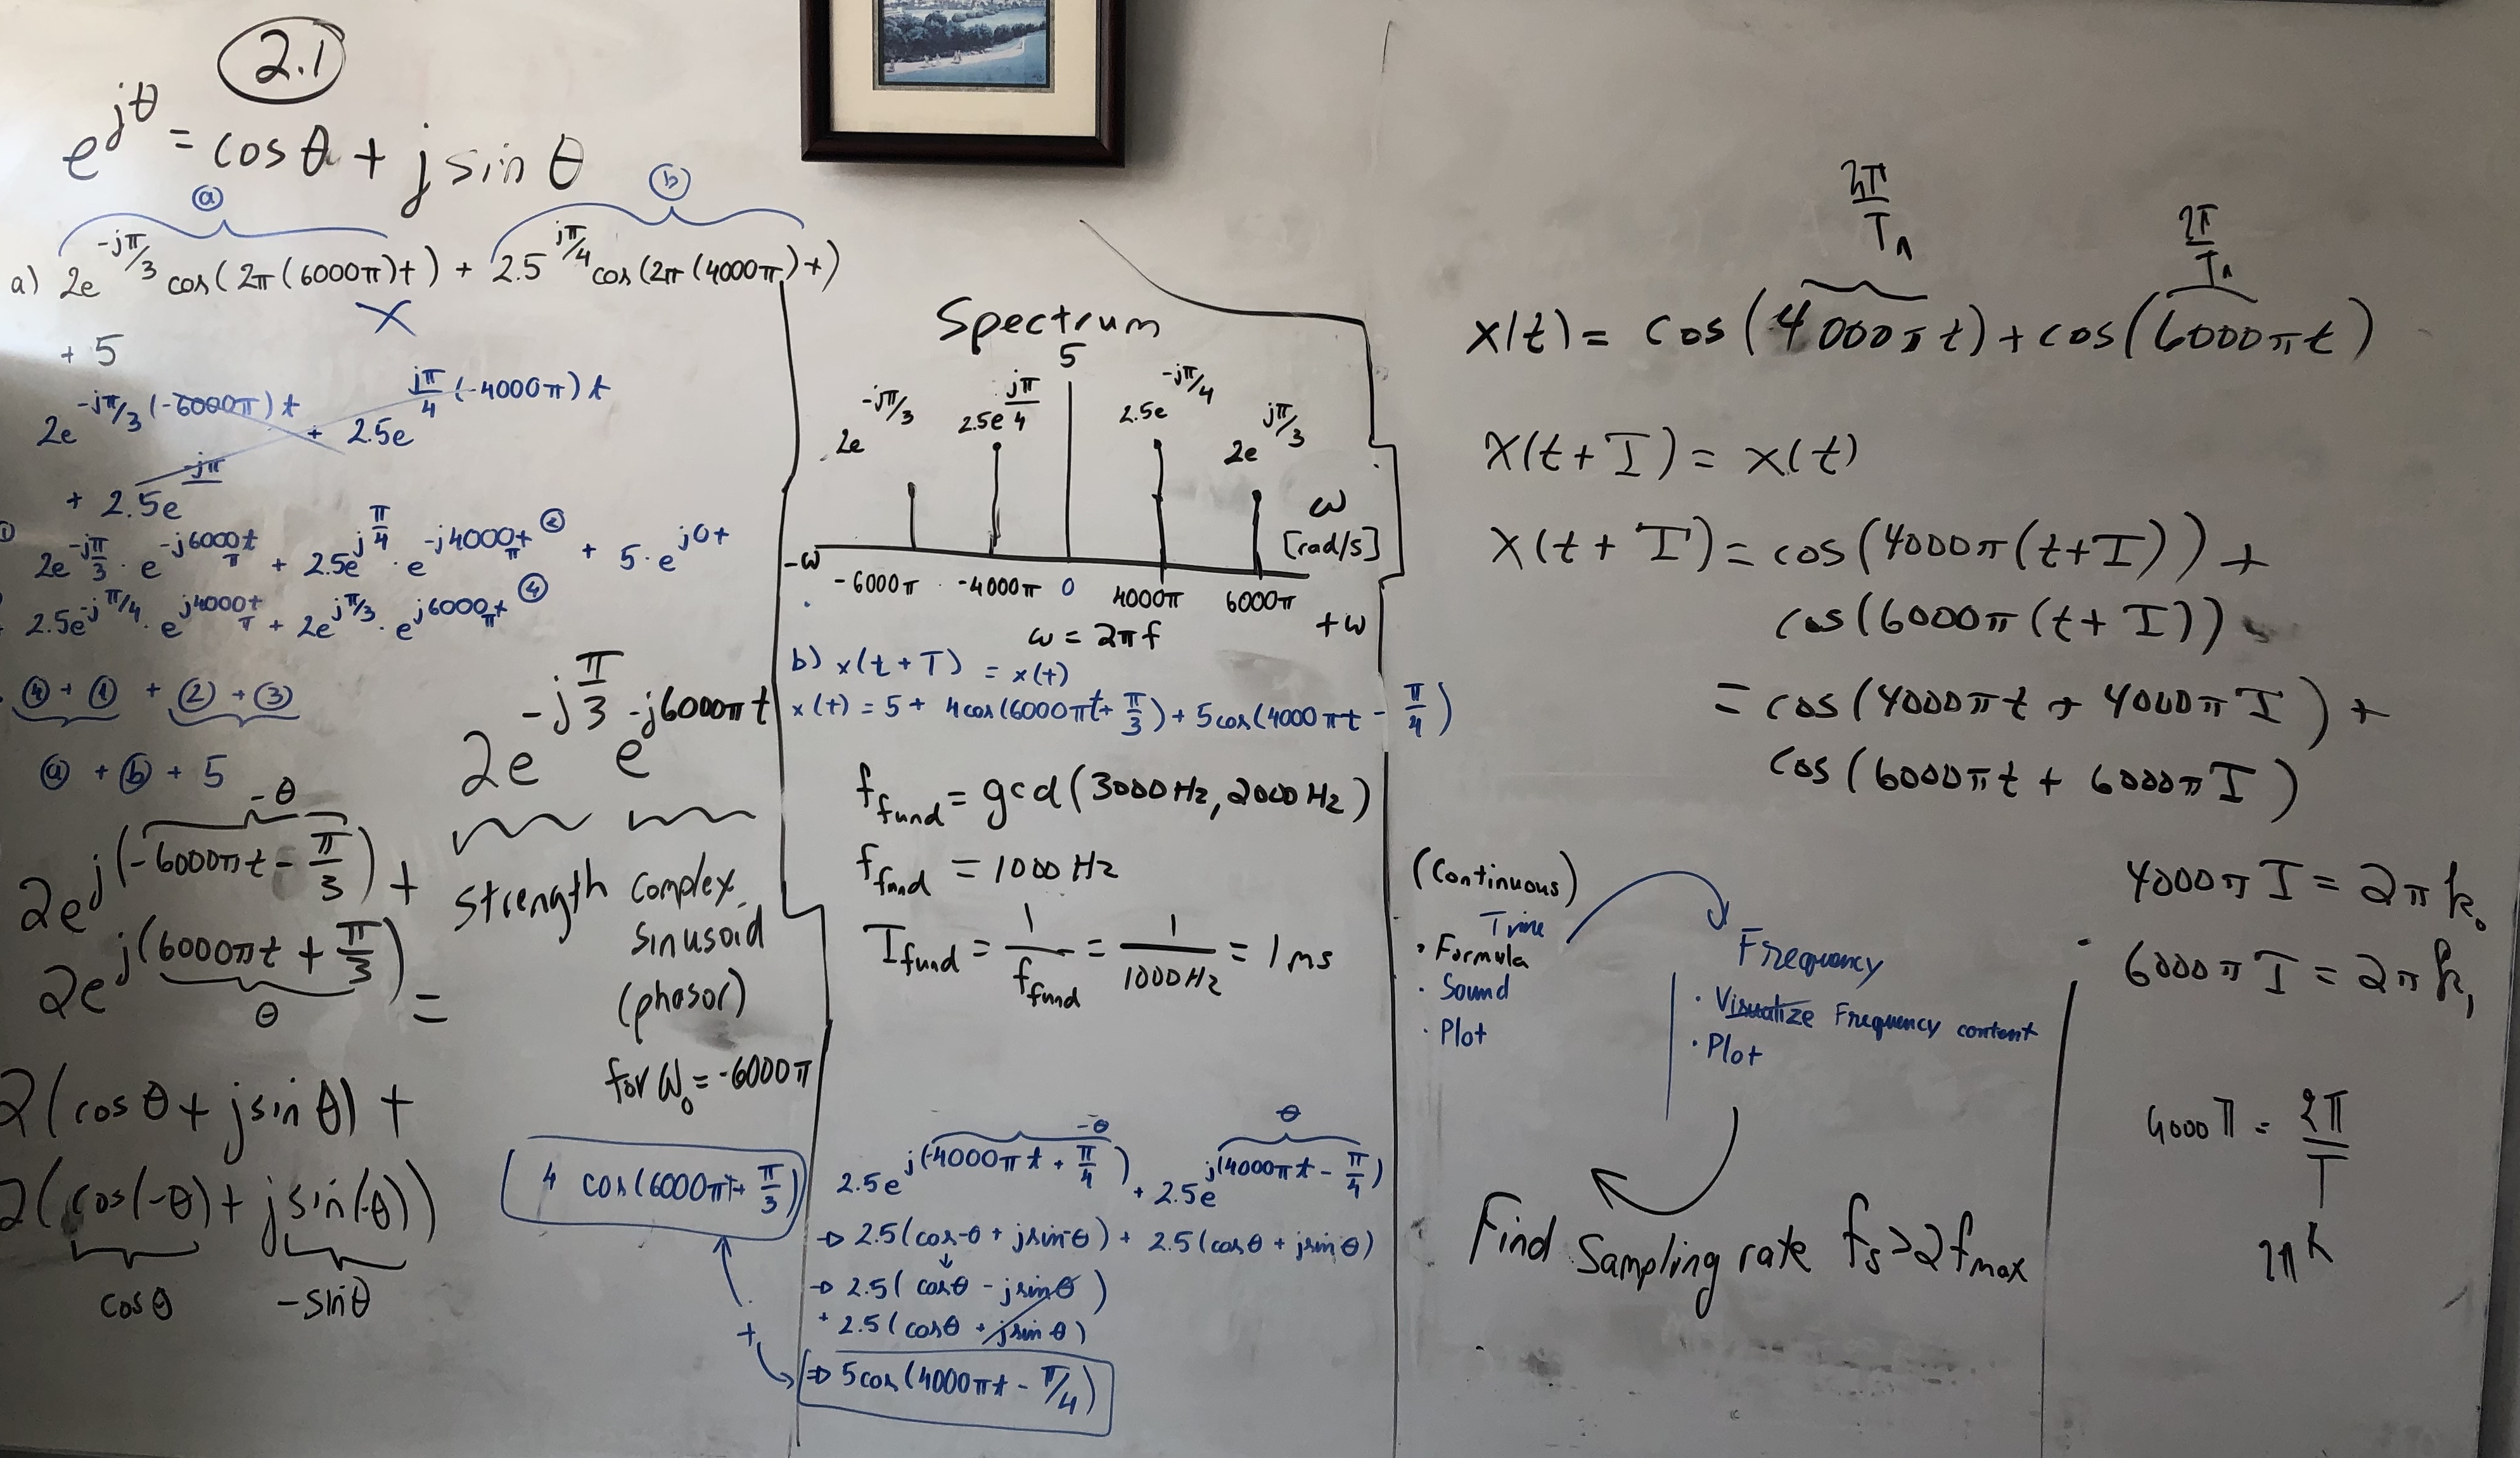 2.1
e^{jθ} = cos θ + j sin θ
ⓐ ⓑ
a) 2e^{-jπ/3} cos(2π(6000π)t) + 2.5^{jπ/4} cos(2π(4000π)t)
+ 5
2e^{-jπ/3 (-6000π)t} + 2.5e^{jπ/4 (-4000π)t}
+ 2.5e^{-jπ}
① 2e^{-jπ/3} · e^{-j6000πt} + 2.5e^{jπ/4} · e^{-j4000πt} ② + 5·e^{j0t}
2.5e^{-jπ/4} · e^{j4000πt} + 2e^{jπ/3} · e^{j6000πt} ④
④ + ① + ② + ③
ⓐ + ⓑ + 5
-θ
2e^{j(-6000πt - π/3)} +
2e^{j(6000πt + π/3)} =
θ
2(cos θ + j sin θ) +
2(cos(-θ) + j sin(-θ))
cos θ -sin θ
2e^{-jπ/3} e^{-j6000πt}
strength complex
sinusoid
(phasor)
for ω₀ = -6000π
4 cos(6000πt + π/3)
+
Spectrum
5
2e^{-jπ/3} 2.5e^{jπ/4} 2.5e^{-jπ/4} 2e^{jπ/3}
ω
[rad/s]
-ω
-6000π -4000π 0 4000π 6000π
+ω
ω = 2πf
b) x(t + T) = x(t)
x(t) = 5 + 4cos(6000πt + π/3) + 5cos(4000πt - π/4)
f_fund = gcd(3000 Hz, 2000 Hz)
f_fund = 1000 Hz
T_fund = 1/f_fund = 1/1000 Hz = 1 ms
-θ θ
2.5e^{j(-4000πt + π/4)} + 2.5e^{j(4000πt - π/4)}
→ 2.5(cos-θ + jsin-θ) + 2.5(cosθ + jsinθ)
→ 2.5(cosθ - jsinθ)
+ 2.5(cosθ + jsinθ)
⇒ 5cos(4000πt - π/4)
2π/T₁ 2π/T₁
x(t) = cos(4000πt) + cos(6000πt)
x(t + T) = x(t)
x(t + T) = cos(4000π(t+T)) +
cos(6000π(t+T))
= cos(4000πt + 4000πT) +
cos(6000πt + 6000πT)
4000πT = 2πk₀
6000πT = 2πk₁
4000π = 2π/T
2πk
(Continuous)
Time
· Formula
· Sound
· Plot
Frequency
· Visualize Frequency content
· Plot
Find Sampling rate f_s > 2f_max